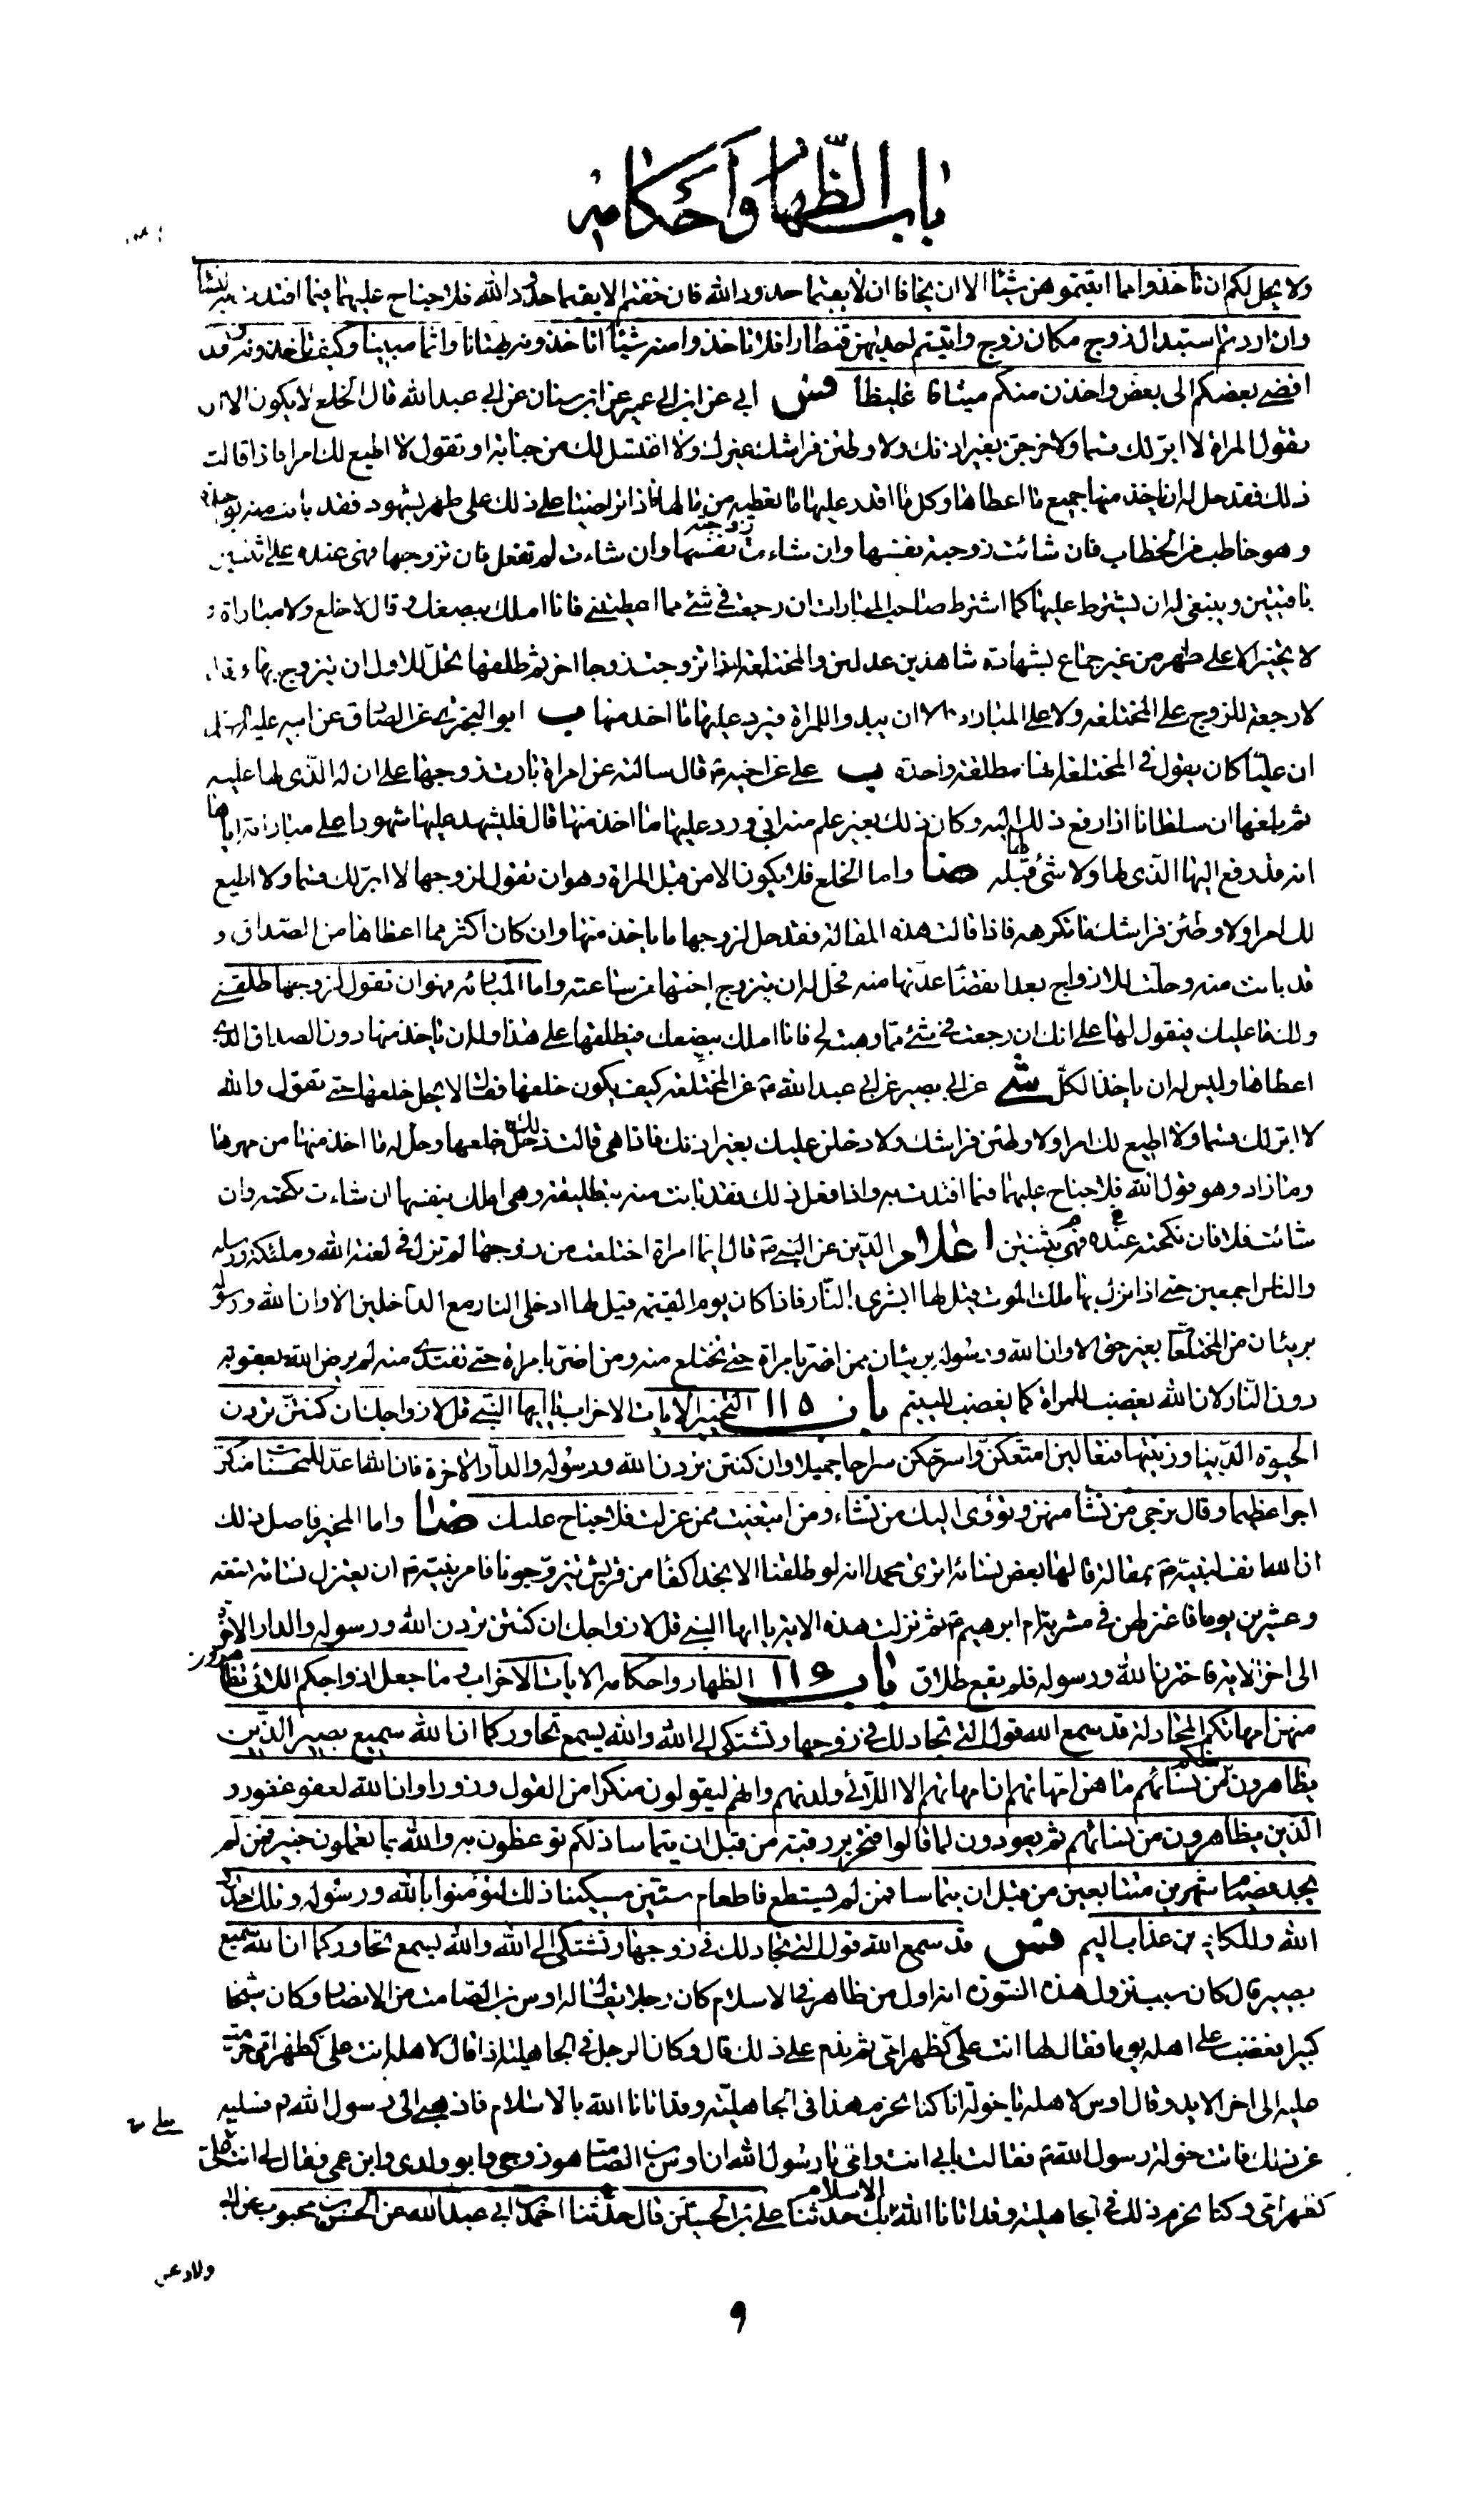 باب الظهار وأحكامه
ولا يحل لكم ان تاخذوا مما اتيتموهن شيئا الا ان يخافا ان لا يقيما حدود الله فان خفتم الا يقيما حدود الله فلا جناح عليهما فيما افتدت به النسا
وان اردتم استبدال زوج مكان زوج واتيتم احديهن قنطارا فلا تاخذوا منه شيئا اتاخذونه بهتانا واثما مبينا وكيف تاخذونه وقد
افضى بعضكم الى بعض واخذن منكم ميثاقا غليظا فس ابي عن ابن ابي عمير عن ابن سنان عن ابي عبد الله قال الخلع لا يكون الا ان
تقول المراة لا ابر لك قسما ولاخرجن بغير اذنك ولاوطئن فراشك غيرك ولا اغتسل لك من جنابة او تقول لا اطيع لك امرا فاذا قالت
ذلك فقد حل له ان ياخذ منها جميع ما اعطاها وكل ما اقتدر عليها مما تعطيه من مالها فاذا تراضيا على ذلك على طهر بشهود فقد بانت منه بواحدة
وهو خاطب من الخطاب فان شائت زوجته نفسها وان شاءت لم تفعل فان تزوجها فهى عنده على اثنتين
باقيتين وينبغى له ان يشترط عليها كما اشترط صاحب المبارات ان رجعت في شئ مما اعطيتني فانا املك ببضعك و قال لا خلع ولا مباراة و
لا تخيير الا على طهر من غير جماع بشهادة شاهدين عدلين والمختلعة اذا تزوجت زوجا اخر ثم طلقها تحل للاول ان يتزوج بها و قال
لا رجعة للزوج على المختلعة ولا على المباراة الا ان يبدو للمراة فيرد عليها ما اخذ منها ب ابو البختري عن الصادق عن ابيه عليه السلام
ان عليا كان يقول في المختلعة انها مطلقة واحدة ب علي عن اخيه قال سالته عن امراة بارت زوجها على ان له الذي لها عليه
ثم بلغها ان سلطانا اذا رفع ذلك اليه وكان ذلك بغير علم منه ابى ورد عليها ما اخذ منها قال فليشهد عليها شهودا على مباراته اياها
انه قد دفع اليها الذي لها ولا شئ لها قبله ضا واما الخلع فلا يكون الا من قبل المراة وهو ان تقول لزوجها لا ابر لك قسما ولا اطيع
لك امرا ولاوطئن فراشك ما تكرهه فاذا قالت هذه المقالة فقد حل لزوجها ما ياخذ منها وان كان اكثر مما اعطاها من الصداق و
قد بانت منه وحلت للازواج بعد انقضاء عدتها منه فحل له ان يتزوج اختها من ساعته واما المباراة فهو ان تقول لزوجها طلقني
ولك ما عليك فيقول لها على انك ان رجعت في شئ مما وهبته لي فانا املك ببضعك فيطلقها على هذا وله ان ياخذ منها دون الصداق الذي
اعطاها وليس له ان ياخذ الكل شي عن ابي بصير عن ابي عبد الله عن المختلعة كيف يكون خلعها فقال لا يحل خلعها حتى تقول والله
لا ابر لك قسما ولا اطيع لك امرا ولاوطئن فراشك ولادخلن عليك بغير اذنك فاذا هي قالت ذلك حل خلعها وحل له ما اخذ منها من مهرها
وما زاد وهو قول الله فلا جناح عليهما فيما افتدت به واذا فعل ذلك فقد بانت منه بتطليقة وهي املك بنفسها ان شاءت نكحته وان
شائت فلا فان نكحته فهي عنده بثنتين اعلام الدين عن النبي قال ايما امراة اختلعت من زوجها لم تزل في لعنة الله وملئكته ورسله
والناس اجمعين حتى اذا نزل بها ملك الموت قيل لها ابشري بالنار فاذا كان يوم القيمة قيل لها ادخلي النار مع الداخلين الا وان الله ورسوله
بريئان من المختلعات بغير حق الا وان الله ورسوله بريئان ممن اضر بامراة حتى تختلع منه ومن اضر بامراة حتى تفتدي منه لم يرض الله بعقوبة
دون النار لان الله يغضب للمراة كما يغضب لليتيم باب ١١٥ التخيير الايات الاحزاب يا ايها النبي قل لازواجك ان كنتن تردن
الحيوة الدنيا وزينتها فتعالين امتعكن واسرحكن سراحا جميلا وان كنتن تردن الله ورسوله والدار الاخرة فان الله اعد للمحسنات منكن
اجرا عظيما وقال ترجى من تشاء منهن وتؤوى اليك من تشاء ومن ابتغيت ممن عزلت فلا جناح عليك ضا واما المخير فاصل ذلك
ان الله انف لنبيه بمقالة قالها بعض نسائه اترى محمدا انه لو طلقنا الا نجد اكفاء من قريش يتزوجونا فامر نبيه ان يعتزل نسائه تسعة
وعشرين يوما فاعتزلهن في مشربة ام ابرهيم ثم نزلت هذه الاية يا ايها النبي قل لازواجك ان كنتن تردن الله ورسوله والدار الاخرة
الى اخر الاية فاخترن الله ورسوله فلم يقع طلاق باب ١١٦ الظهار واحكامه الايات الاحزاب وما جعل ازواجكم اللائي تظاهرون
منهن امهاتكم المجادلة قد سمع الله قول التي تجادلك في زوجها وتشتكي الى الله والله يسمع تحاوركما ان الله سميع بصير الذين
يظاهرون منكم من نسائهم ما هن امهاتهم ان امهاتهم الا اللائي ولدنهم وانهم ليقولون منكرا من القول وزورا وان الله لعفو غفور و
الذين يظاهرون من نسائهم ثم يعودون لما قالوا فتحرير رقبة من قبل ان يتماسا ذلكم توعظون به والله بما تعملون خبير فمن لم
يجد فصيام شهرين متتابعين من قبل ان يتماسا فمن لم يستطع فاطعام ستين مسكينا ذلك لتؤمنوا بالله ورسوله وتلك حدود
الله وللكافرين عذاب اليم فس قد سمع الله قول التي تجادلك في زوجها وتشتكي الى الله والله يسمع تحاوركما ان الله سميع
بصير قال كان سبب نزول هذه السورة انه اول من ظاهر في الاسلام كان رجلا يقال له اوس بن الصامت من الانصار وكان شيخا
كبيرا فغضب على اهله يوما فقال لها انت علي كظهر امي ثم ندم على ذلك قال وكان الرجل في الجاهلية اذا قال لاهله انت علي كظهر امي حرمت
عليه الى اخر الابد وقال اوس لاهله يا خولة انا كنا نحرم هذا في الجاهلية وقد اتانا الله بالاسلام فاذهبي الى رسول الله فسليه
عن ذلك فاتت خولة رسول الله فقالت بابي انت وامي يا رسول الله ان اوس بن الصامت هو زوجي وابو ولدي وابن عمي فقال لي انت علي
كظهر امي وكنا نحرم ذلك في الجاهلية وقد اتانا الله الاسلام بك حدثنا علي بن الحسين قال حدثنا احمد بن ابي عبد الله عن الحسن بن محبوب عن ابي
ولاد عن
٩